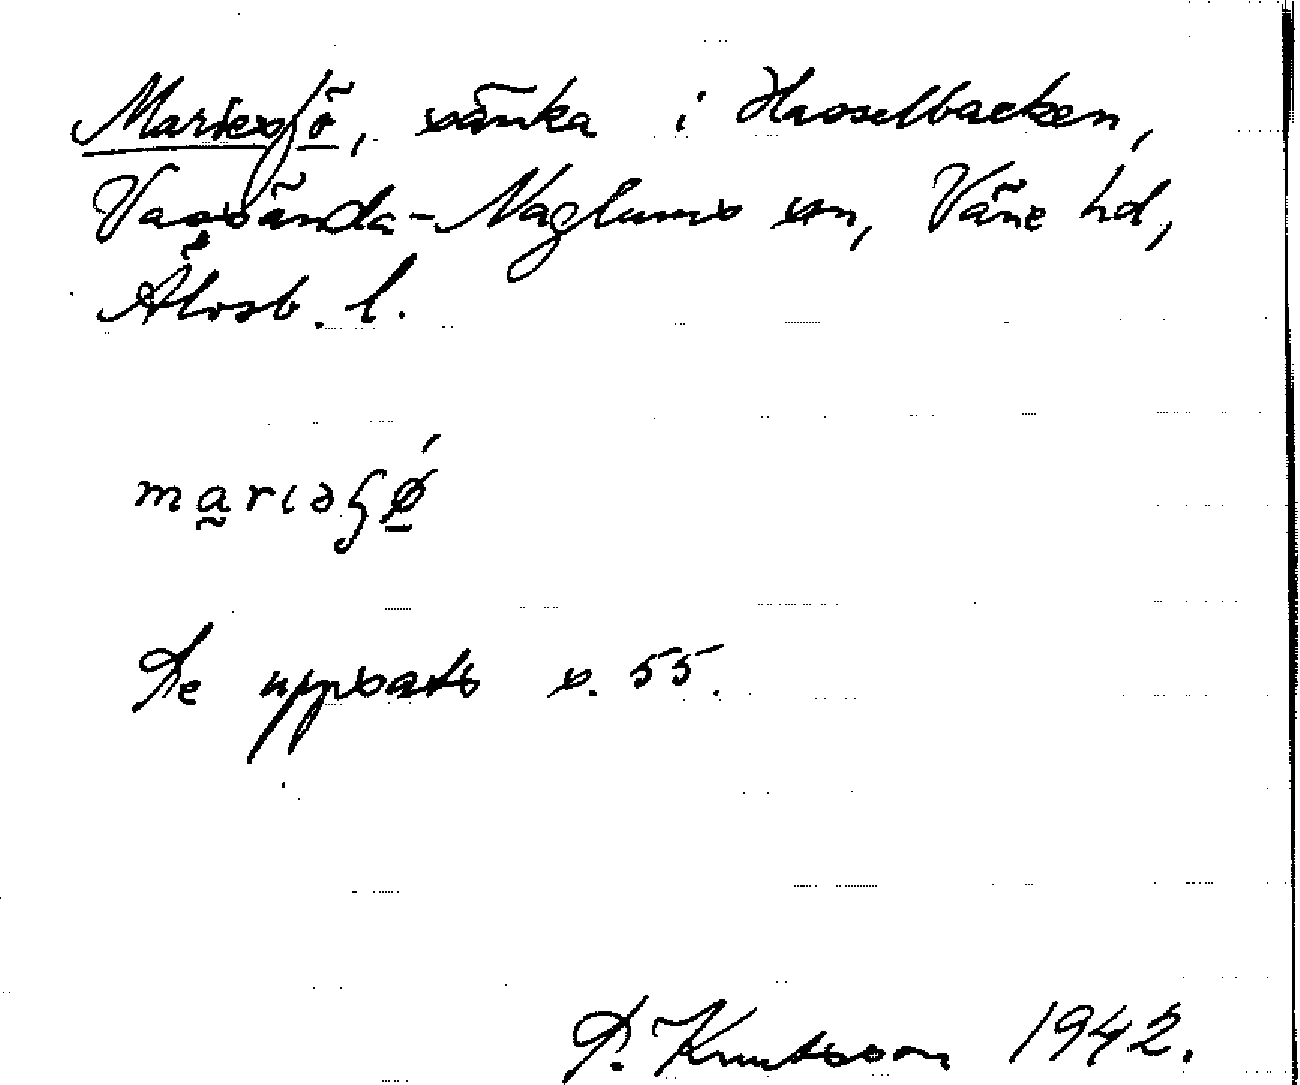 Mariesjö, sänka i Hasselbacken,
Vassända-Naglums sn, Väne hd,
Älvsb. l.
Se uppsats s. 55.
P. Knutsson 1942.